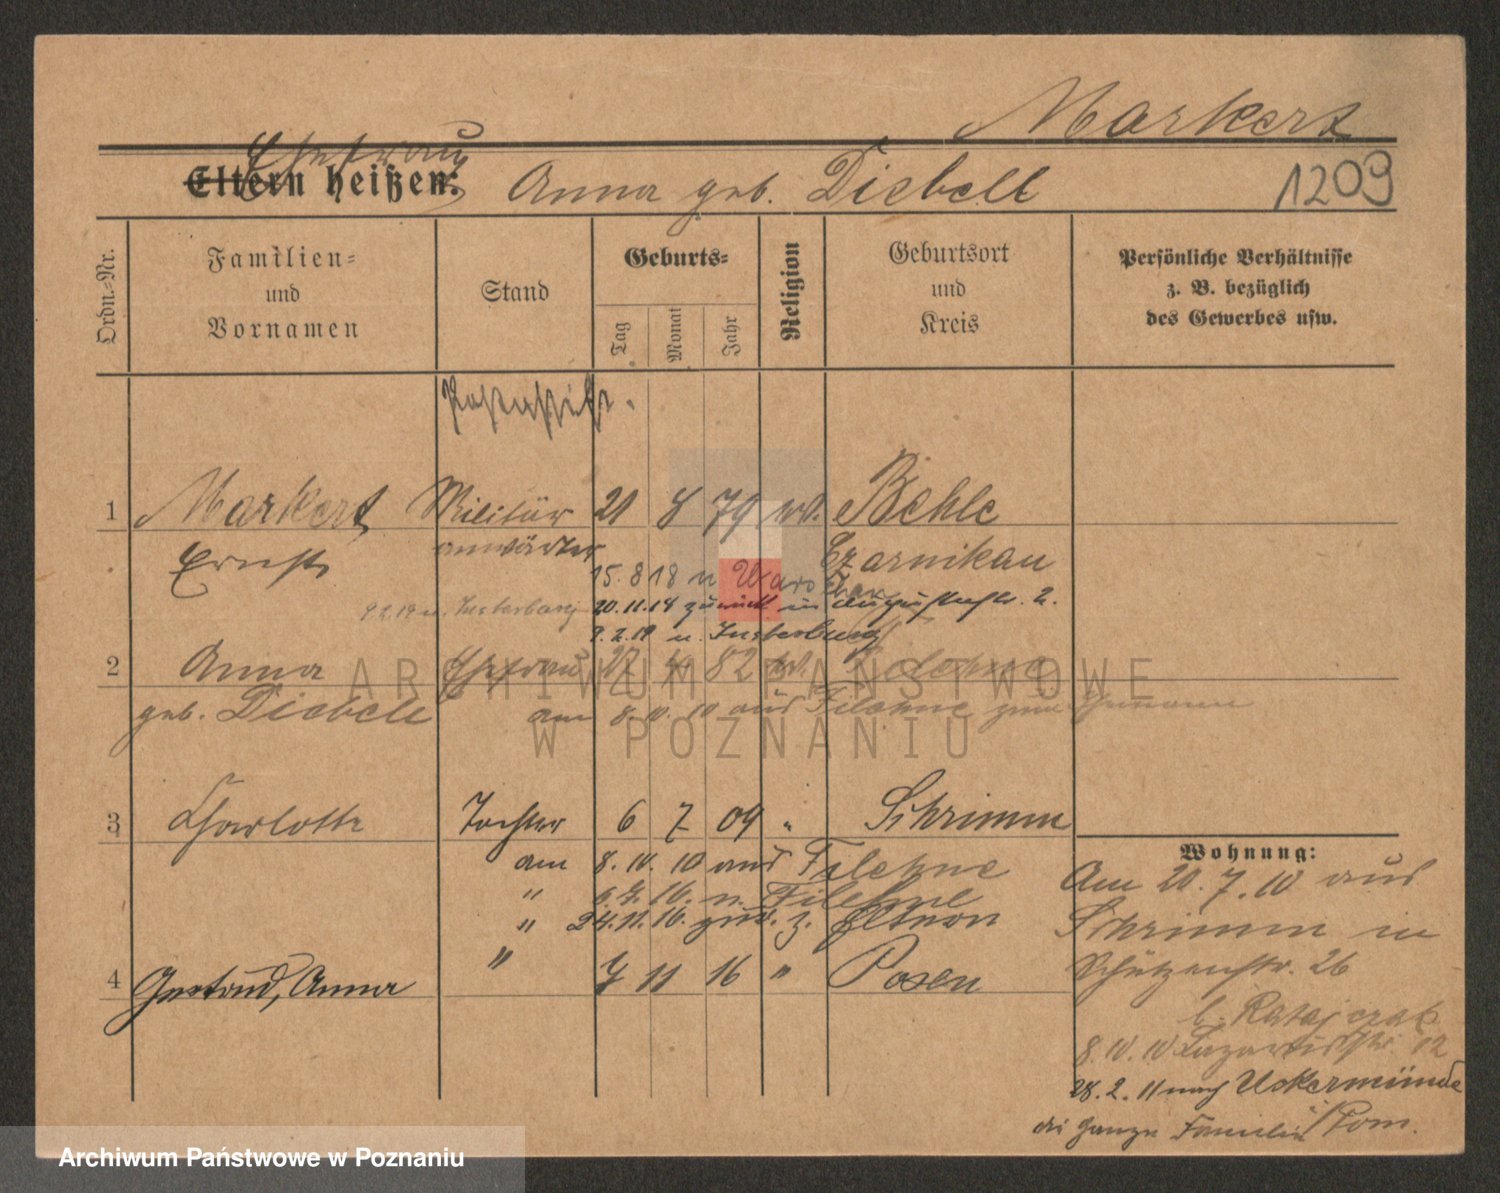 Markert
Ehefrau
Eltern heißen: Anna geb. Diebell 1209
Ordn.-Nr.
Familien-
und
Vornamen
Stand
Geburts-
Tag
Monat
Jahr
Religion
Geburtsort
und
Kreis
Persönliche Verhältnisse
z. B. bezüglich
des Gewerbes usw.
1 Markert Militär 21 8 79 ev. Behle
Ernst anwärter Czarnikau
15. 8 18 n
9.2.19 n. Insterburg 20.11.18 zurück in Augustastr. 2.
9.2.19 n. Insterburg
2 Anna Ehefrau 82 ev. Filehne
geb. Diebell am 8. 10. 10 aus Filehne zum Ehemann
3 Charlotte Tochter 6 7 09 " Schrimm
am 8. 10. 10 aus Filehne
" 6.7.16. n. Filehne
" 24.11.16. zur. z. Eltern
4 Gertrud, Anna " 7 11 16 " Posen
Wohnung:
Am 20. 7. 10 aus
Schrimm in
Schützenstr. 26
b. Ratajczak
8. 10. 10 Lazarusstr. 12
28. 2. 11 nach Uekermünde
die ganze Familie /Pom.
ARCHIWUM PAŃSTWOWE
W POZNANIU
Archiwum Państwowe w Poznaniu